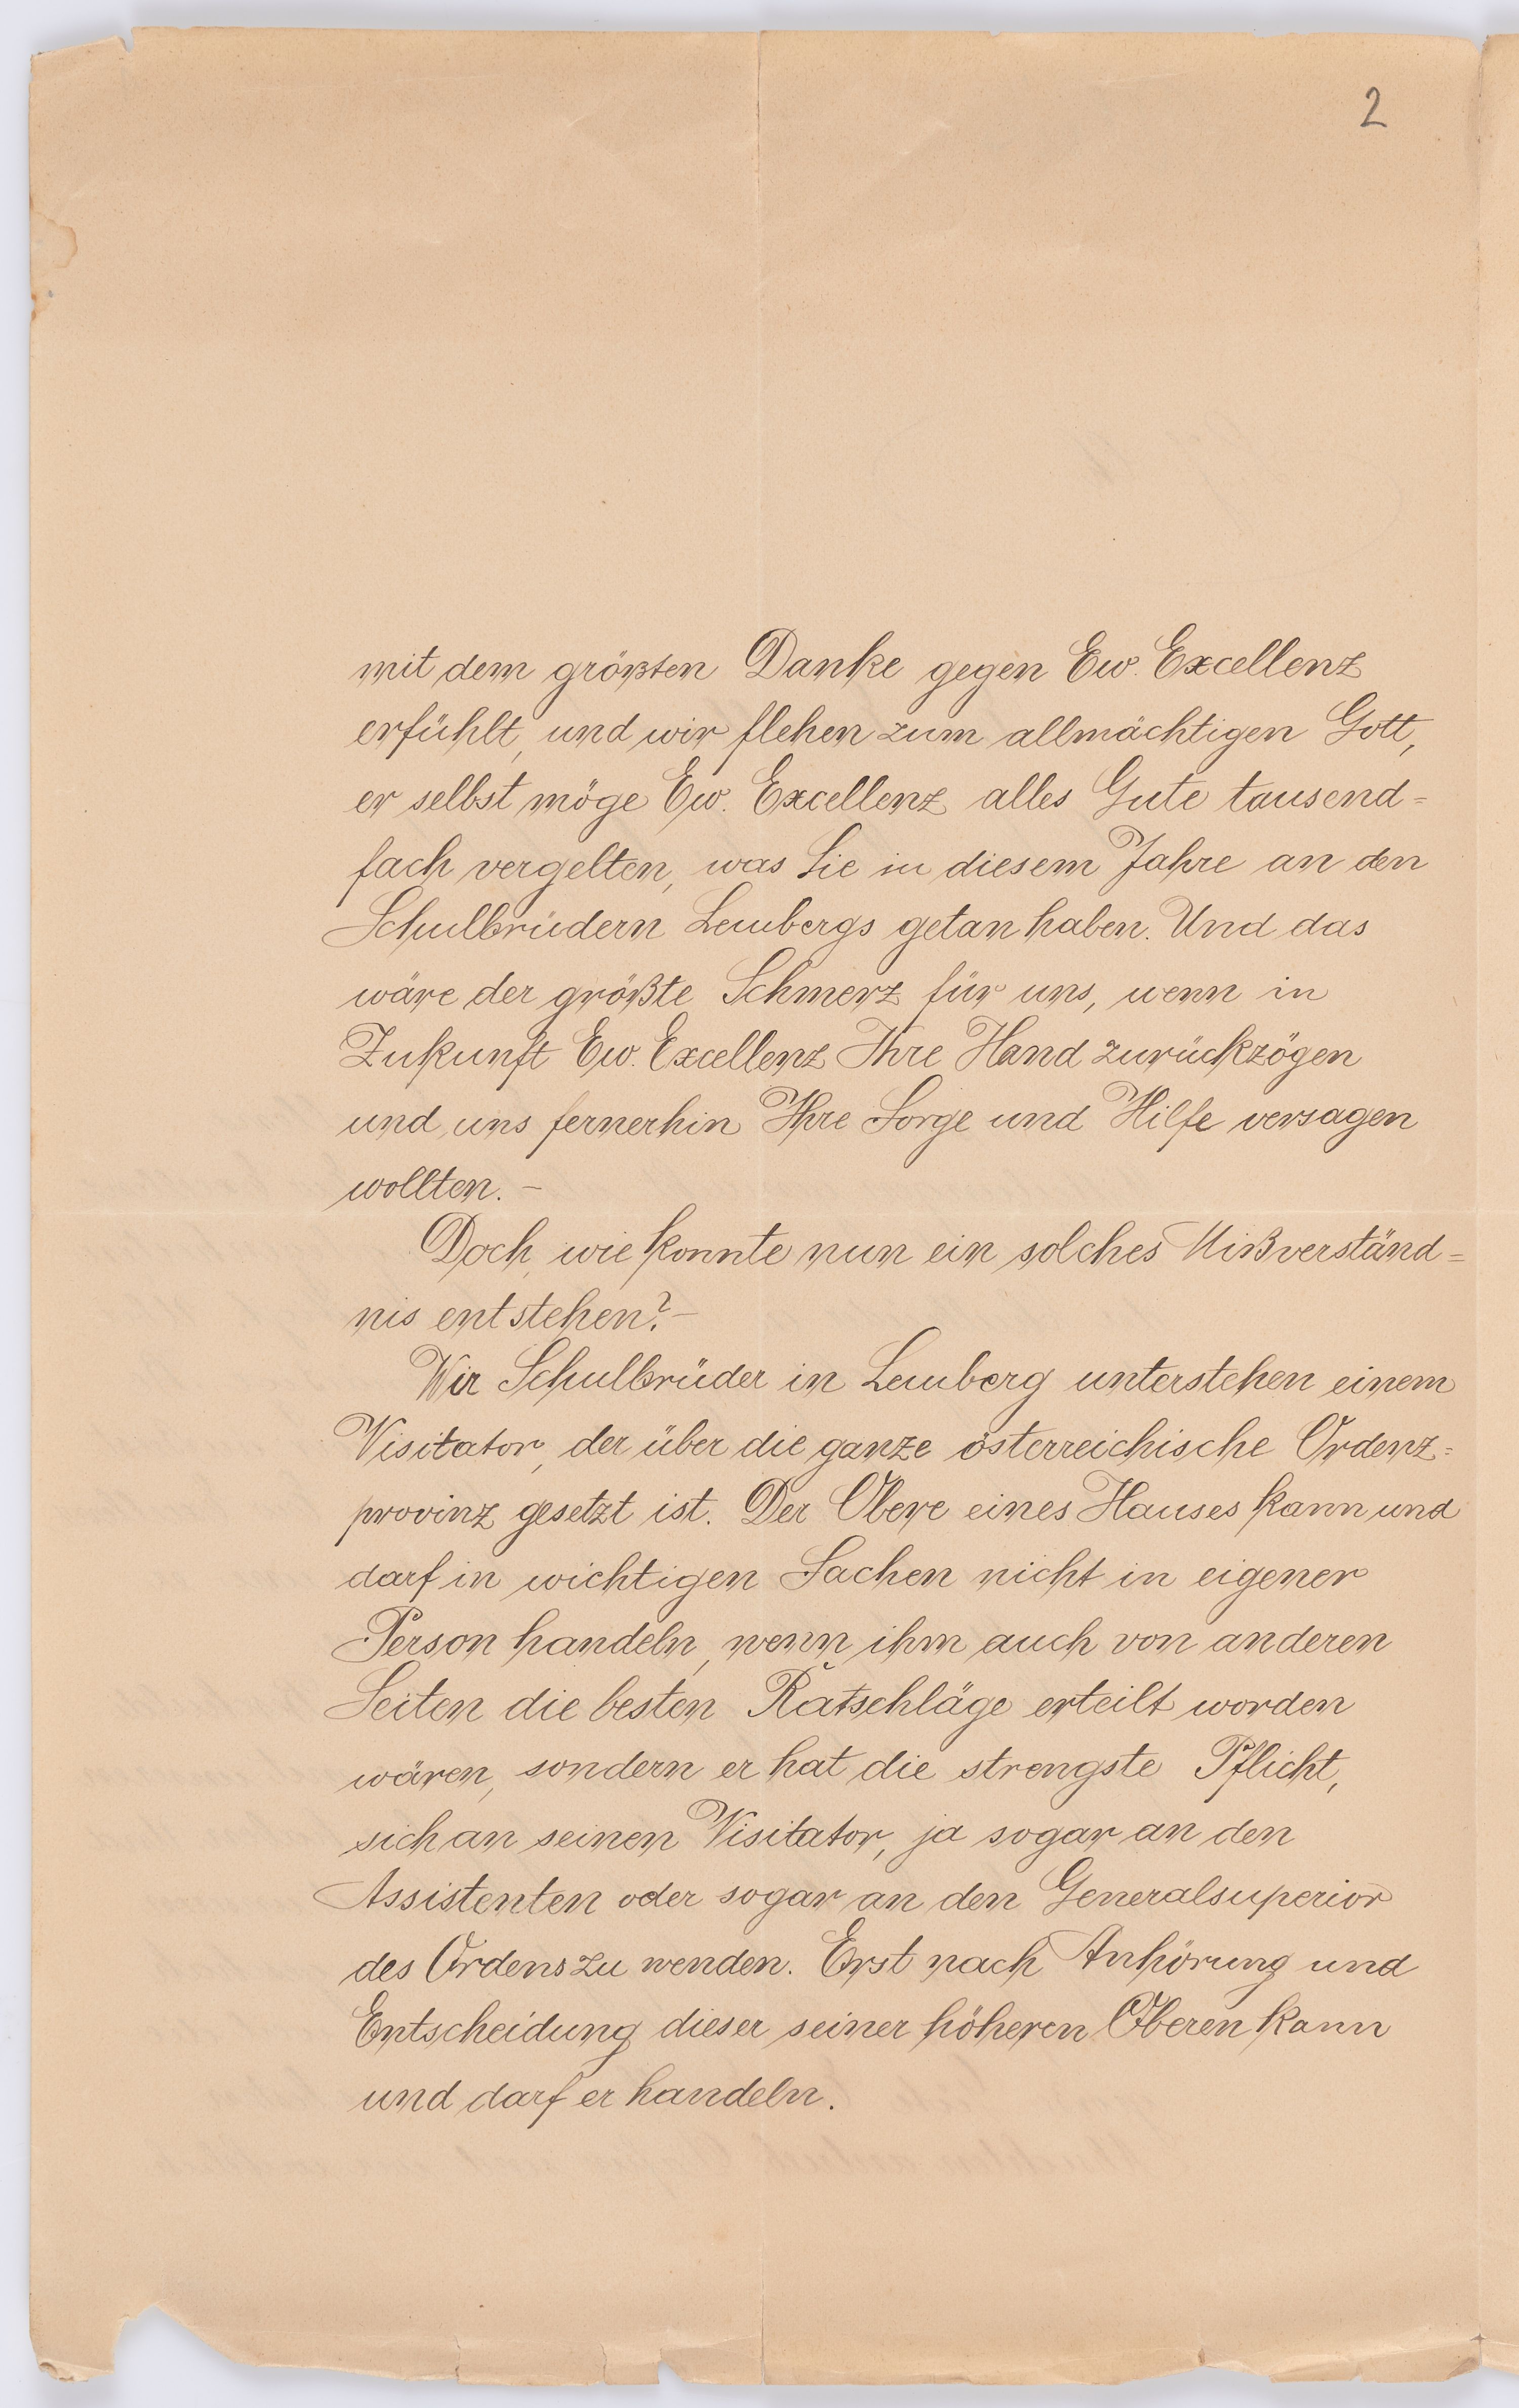 2
mit dem größten Danke gegen Ew. Excellenz
erfühlt, und wir flehen zum allmächtigen Gott,
er selbst möge Ew. Excellenz alles Gute tausend=
fach vergelten, was Sie in diesem Jahre an den
Schulbrüdern Lembergs getan haben. Und das
wäre der größte Schmerz für uns, wenn in
Zukunft Ew. Excellenz Ihre Hand zurückzögen
und uns fernerhin Ihre Sorge und Hilfe versagen
wollten. –
Doch, wie konnte nun ein solches Mißverständ=
nis entstehen? –
Wir Schulbrüder in Lemberg unterstehen einem
Visitator, der über die ganze österreichische Ordenz=
provinz gesetzt ist. Der Obere eines Hauses kann und
darf in wichtigen Sachen nicht in eigener
Person handeln, wenn ihm auch von anderen
Seiten die besten Ratschläge erteilt worden
wären, sondern er hat die strengste Pflicht,
sich an seinen Visitator, ja sogar an den
Assistenten oder sogar an den Generalsuperior
des Ordens zu wenden. Erst nach Anhörung und
Entscheidung dieser seiner höheren Oberen kann
und darf er handeln.